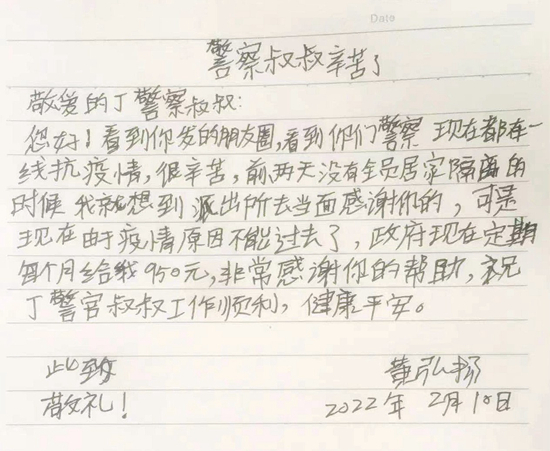 Date
警察叔叔辛苦了
敬爱的丁警察叔叔:
您好!看到你发的朋友圈,看到你们警察 现在都在一
线抗疫情,很辛苦,前两天没有全员居家隔离的
时候 我就想到派出所去当面感谢你的,可是
现在由于疫情原因不能过去了,政府现在定期
每个月给我950元,非常感谢你的帮助,祝
丁警官叔叔工作顺利,健康平安。
此致
黄弘扬
敬礼!
2022年 2月10日